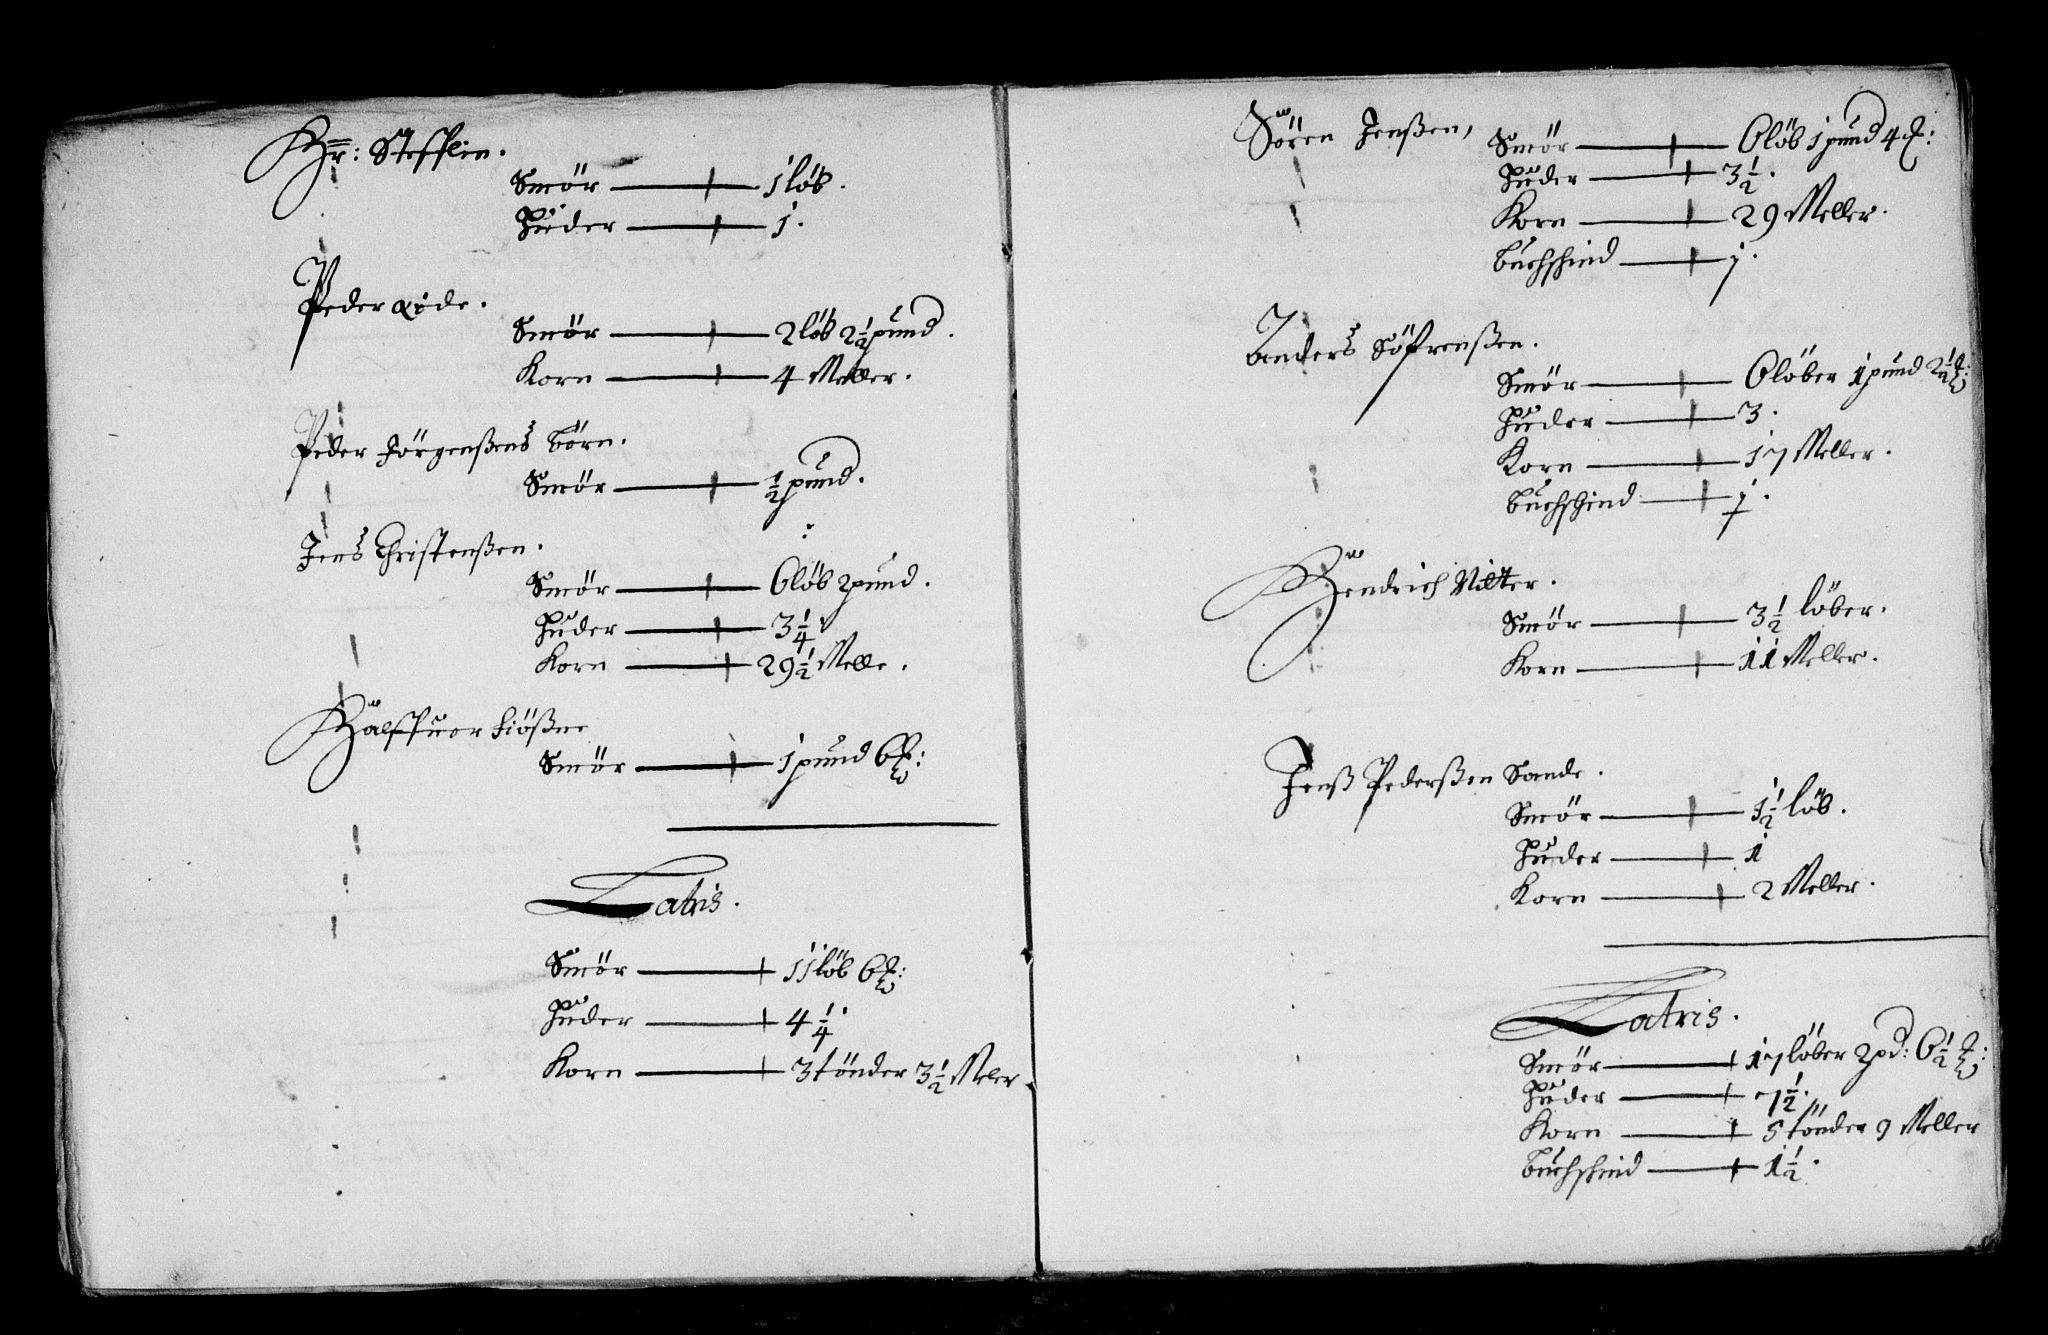 Hr: Stefflin.
Smör — 1 löb.
Huder — 1.
Peder Lide.
Smör — 2 löb 2½ pund.
Korn — 4 Meller.
Peder Jörgenßens börn.
Smör — ½ pund.
Jens Christenßen.
Smör — 6 löb 2 pund.
Huder — 3¼
Korn — 29½ Melle.
Halffuor Liößne
Smör — 1 pund 6 ℔:
Latris.
Smör — 11 löb 6 ℔:
Huder — 4¼
Korn — 3 tönder 3½ Meler
Sören Jenßen,
Smör — 6 löb 1 pund 4 ℔:
Huder — 3½.
Korn — 29 Meller.
buchschind — 1.
Anders Söffrenßen.
Smör — 6 löber 1 pund 2½ ℔:
Huder — 3.
Korn — 17 Meller.
buchschind — ½.
Hendrich Nilter.
Smör — 3½ löber.
Korn — 11 Meller.
Jenß Pederßen Sande.
Smör — 1½ löb.
Huder — 1
Korn — 2 Meller.
Latris.
Smör — 17 löber 2 pd: 6½ ℔:
Huder — 7½.
Korn — 5 tönder 9 Meller
buchschind — 1½.